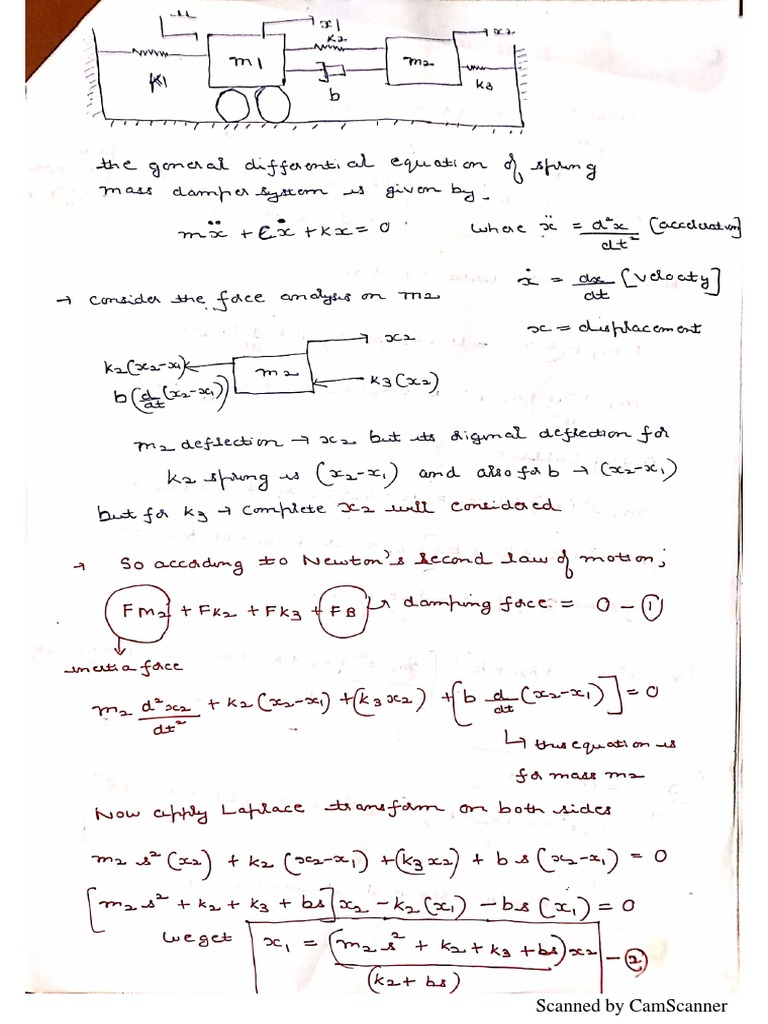 u
x1
k2
x2
m1
m2
k1
b
k3
the general differential equation of spring
mass damper system is given by:
mẍ + cẋ + kx = 0
where ẍ = d²x/dt² [acceleration]
ẋ = dx/dt [velocity]
→ consider the force analysis on m2
x = displacement
x2
k2(x2-x1)
m2
k3(x2)
b(d/dt(x2-x1))
m2 deflection → x2 but its
deflection for
k2 spring is (x2-x1) and also for b → (x2-x1)
but for k3 → complete x2 will considered
→ So according to Newton's second law of motion;
FM2 + FK2 + FK3 + FB → damping force = 0 - ①
inertia force
m2 d²x2/dt² + k2(x2-x1) + (k3x2) + [b d/dt(x2-x1)] = 0
↳ this equation is
for mass m2
Now apply Laplace transform on both sides
m2 s²(x2) + k2(x2-x1) + (k3x2) + bs(x2-x1) = 0
[m2s² + k2 + k3 + bs]x2 - k2(x1) - bs(x1) = 0
we get x1 = (m2s² + k2 + k3 + bs)x2/(k2 + bs) - ②
Scanned by CamScanner